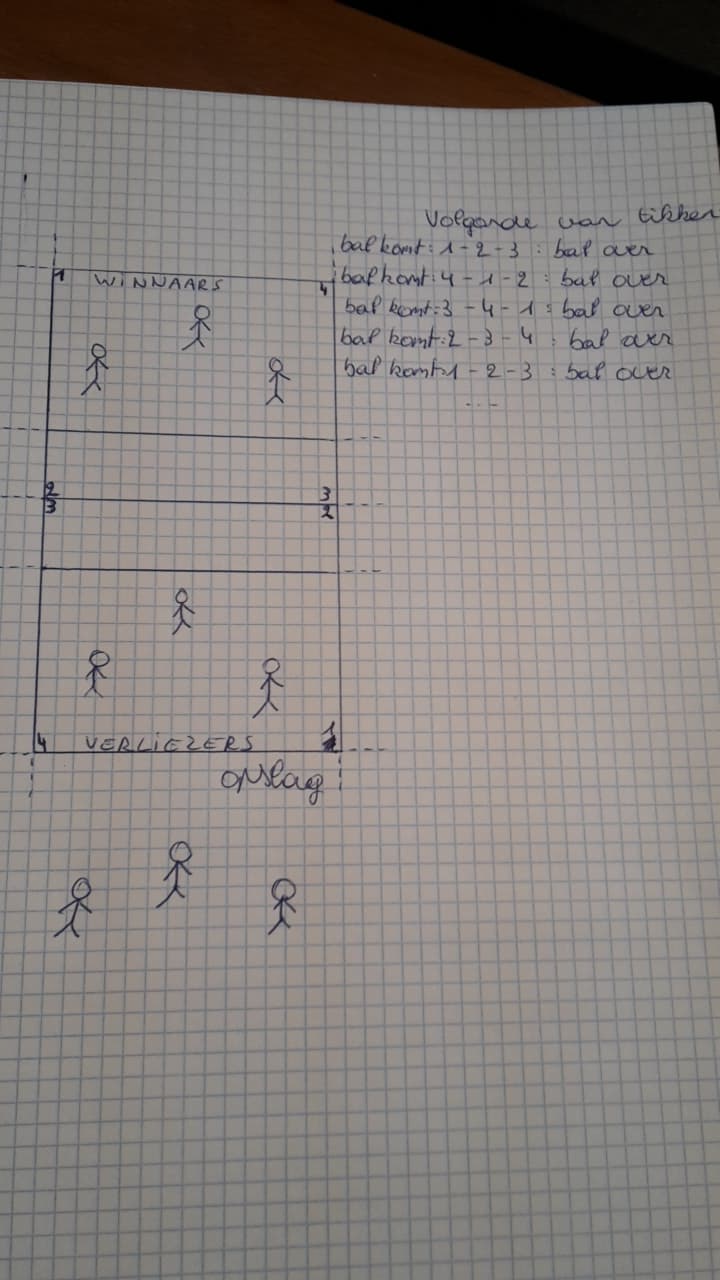 Volgorde van tikken
bal komt: 1 - 2 - 3 : bal over
1 WINNAARS 4
bal komt: 4 - 1 - 2 : bal over
bal komt: 3 - 4 - 1 : bal over
bal komt: 2 - 3 - 4 : bal over
bal komt: 1 - 2 - 3 : bal over
...
2 3
3 2
4 VERLIEZERS 1
opslag